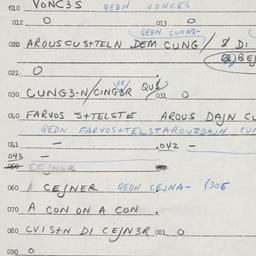 010 VONC3S QEDN VONCES
012 O 013. O
QEDN CUNH2-
020 AROUSCUSTTELN DEM CUNG/ $ DI
BEJ
021. O
030 CUNG3-N/CINGƎR QUS 031 O
040 FARVOS S+TELSTE AROUS DAJN CU
QEDN FARVOS++TELSTAROUZDAJN CUN
041 — .042 —
043 —
050 CEJNER
060 CEJNER QEDN CEJNA- (306
070 A CON ON A CON .
080 CVISTN DI CEJN3R 081 O
090 O